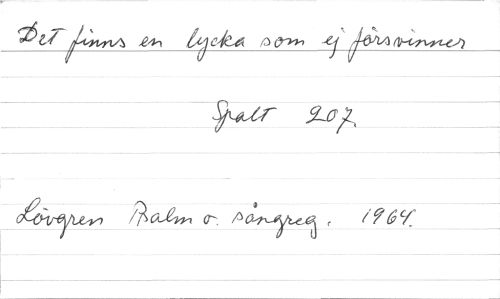 Det finns en lycka som ej försvinner
Spalt 207.
Lövgren Psalm o. sångreg. 1964.